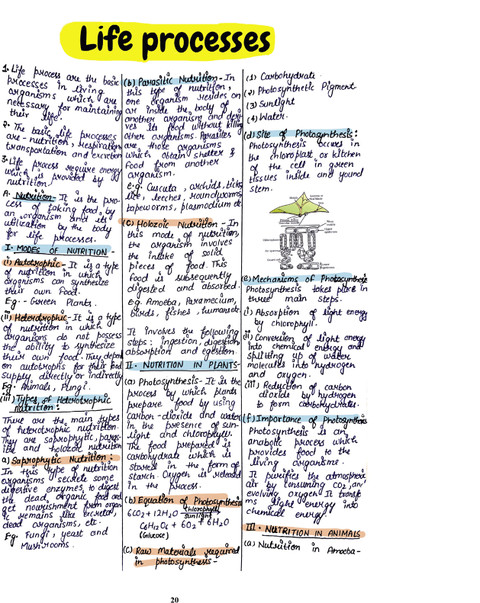 Life processes
1. Life process are the basic
processes in living
organisms which are
necessary for maintaining
their life.
2. The basic life processes
are - nutrition, respiration
transportation and excretion
3. Life process require energy
which is provided by
nutrition.
A. Nutrition - It is the pro-
cess of taking food by
an organism and its
utilization by the body
for life processes.
I- MODES OF NUTRITION -
(i) Autotrophic - It is a type
of nutrition in which
organisms can synthesize
their own food.
Eg - Green Plants.
(ii) Heterotrophic - It is a type
of nutrition in which
organisms do not possess
the ability to synthesize
their own food. They depend
on autotrophs for their food
supply directly or indirectly
Eg - Animals, Fungi.
(iii) Types of Heterotrophic
nutrition:
There are the main types
of heterotrophic nutrition.
They are saprophytic, paras-
itic and holozoic nutrition
a) Saprophytic Nutrition:
In this type of nutrition
organisms secrete some
digestive enzymes, to digest
the dead, organic food and
get nourishment from organ-
ic remains like bacteria,
dead organisms, etc.
Eg - Fungi, yeast and
Mushrooms.
(b) Parasitic Nutrition - In
this type of nutrition,
one organism resides on
or inside the body of
another organism and deri-
ves its food without killing
others organisms. Parasites
are those organisms
which obtain shelter &
food from another
organism.
e.g - Cuscuta, orchids, ticks
lice, leeches, roundworms
tapeworms, plasmodium etc
(c) Holozoic Nutrition - In
this mode of nutrition,
the organism involves
the intake of solid
pieces of food. This
food is subsequently
digested and absorbed.
e.g - Amoeba, Paramecium,
birds, fishes, humans etc.
It involves the following
steps: ingestion, digestion,
absorption and egestion
II - NUTRITION IN PLANTS -
(a) Photosynthesis - It is the
process by which plants
prepare food by using
carbon-dioxide and water
in the presence of sun-
light and chlorophyll.
The food prepared is
carbohydrate which is
stored in the form of
starch. Oxygen is released
in the process.
(b) Equation of Photosynthesis
6CO2 + 12H2O chlorophyll
sunlight
C6H12O6 + 6O2 + 6H2O
(Glucose)
(c) Raw Materials required
in photosynthesis -
(1) Carbohydrate
(2) Photosynthetic Pigment
(3) Sunlight
(4) Water.
(d) Site of Photosynthesis:
Photosynthesis occurs in
the chloroplast or kitchen
of the cell in green
tissues inside and young
stem.
(e) Mechanisms of Photosynthesis
Photosynthesis takes place in
three main steps.
i) Absorption of light energy
by chlorophyll.
ii) Conversion of light energy
into chemical energy and
splitting up of water
molecules into hydrogen
and oxygen.
iii) Reduction of carbon
dioxide by hydrogen
to form carbohydrates.
(f) Importance of Photosynthesis
Photosynthesis is an
anabolic process which
provides food to the
living organisms.
It purifies the atmospheric
air by consuming CO2 and
evolving oxygen. It transfo
ms light energy into
chemical energy.
III - NUTRITION IN ANIMALS
(a) Nutrition in Amoeba -
20